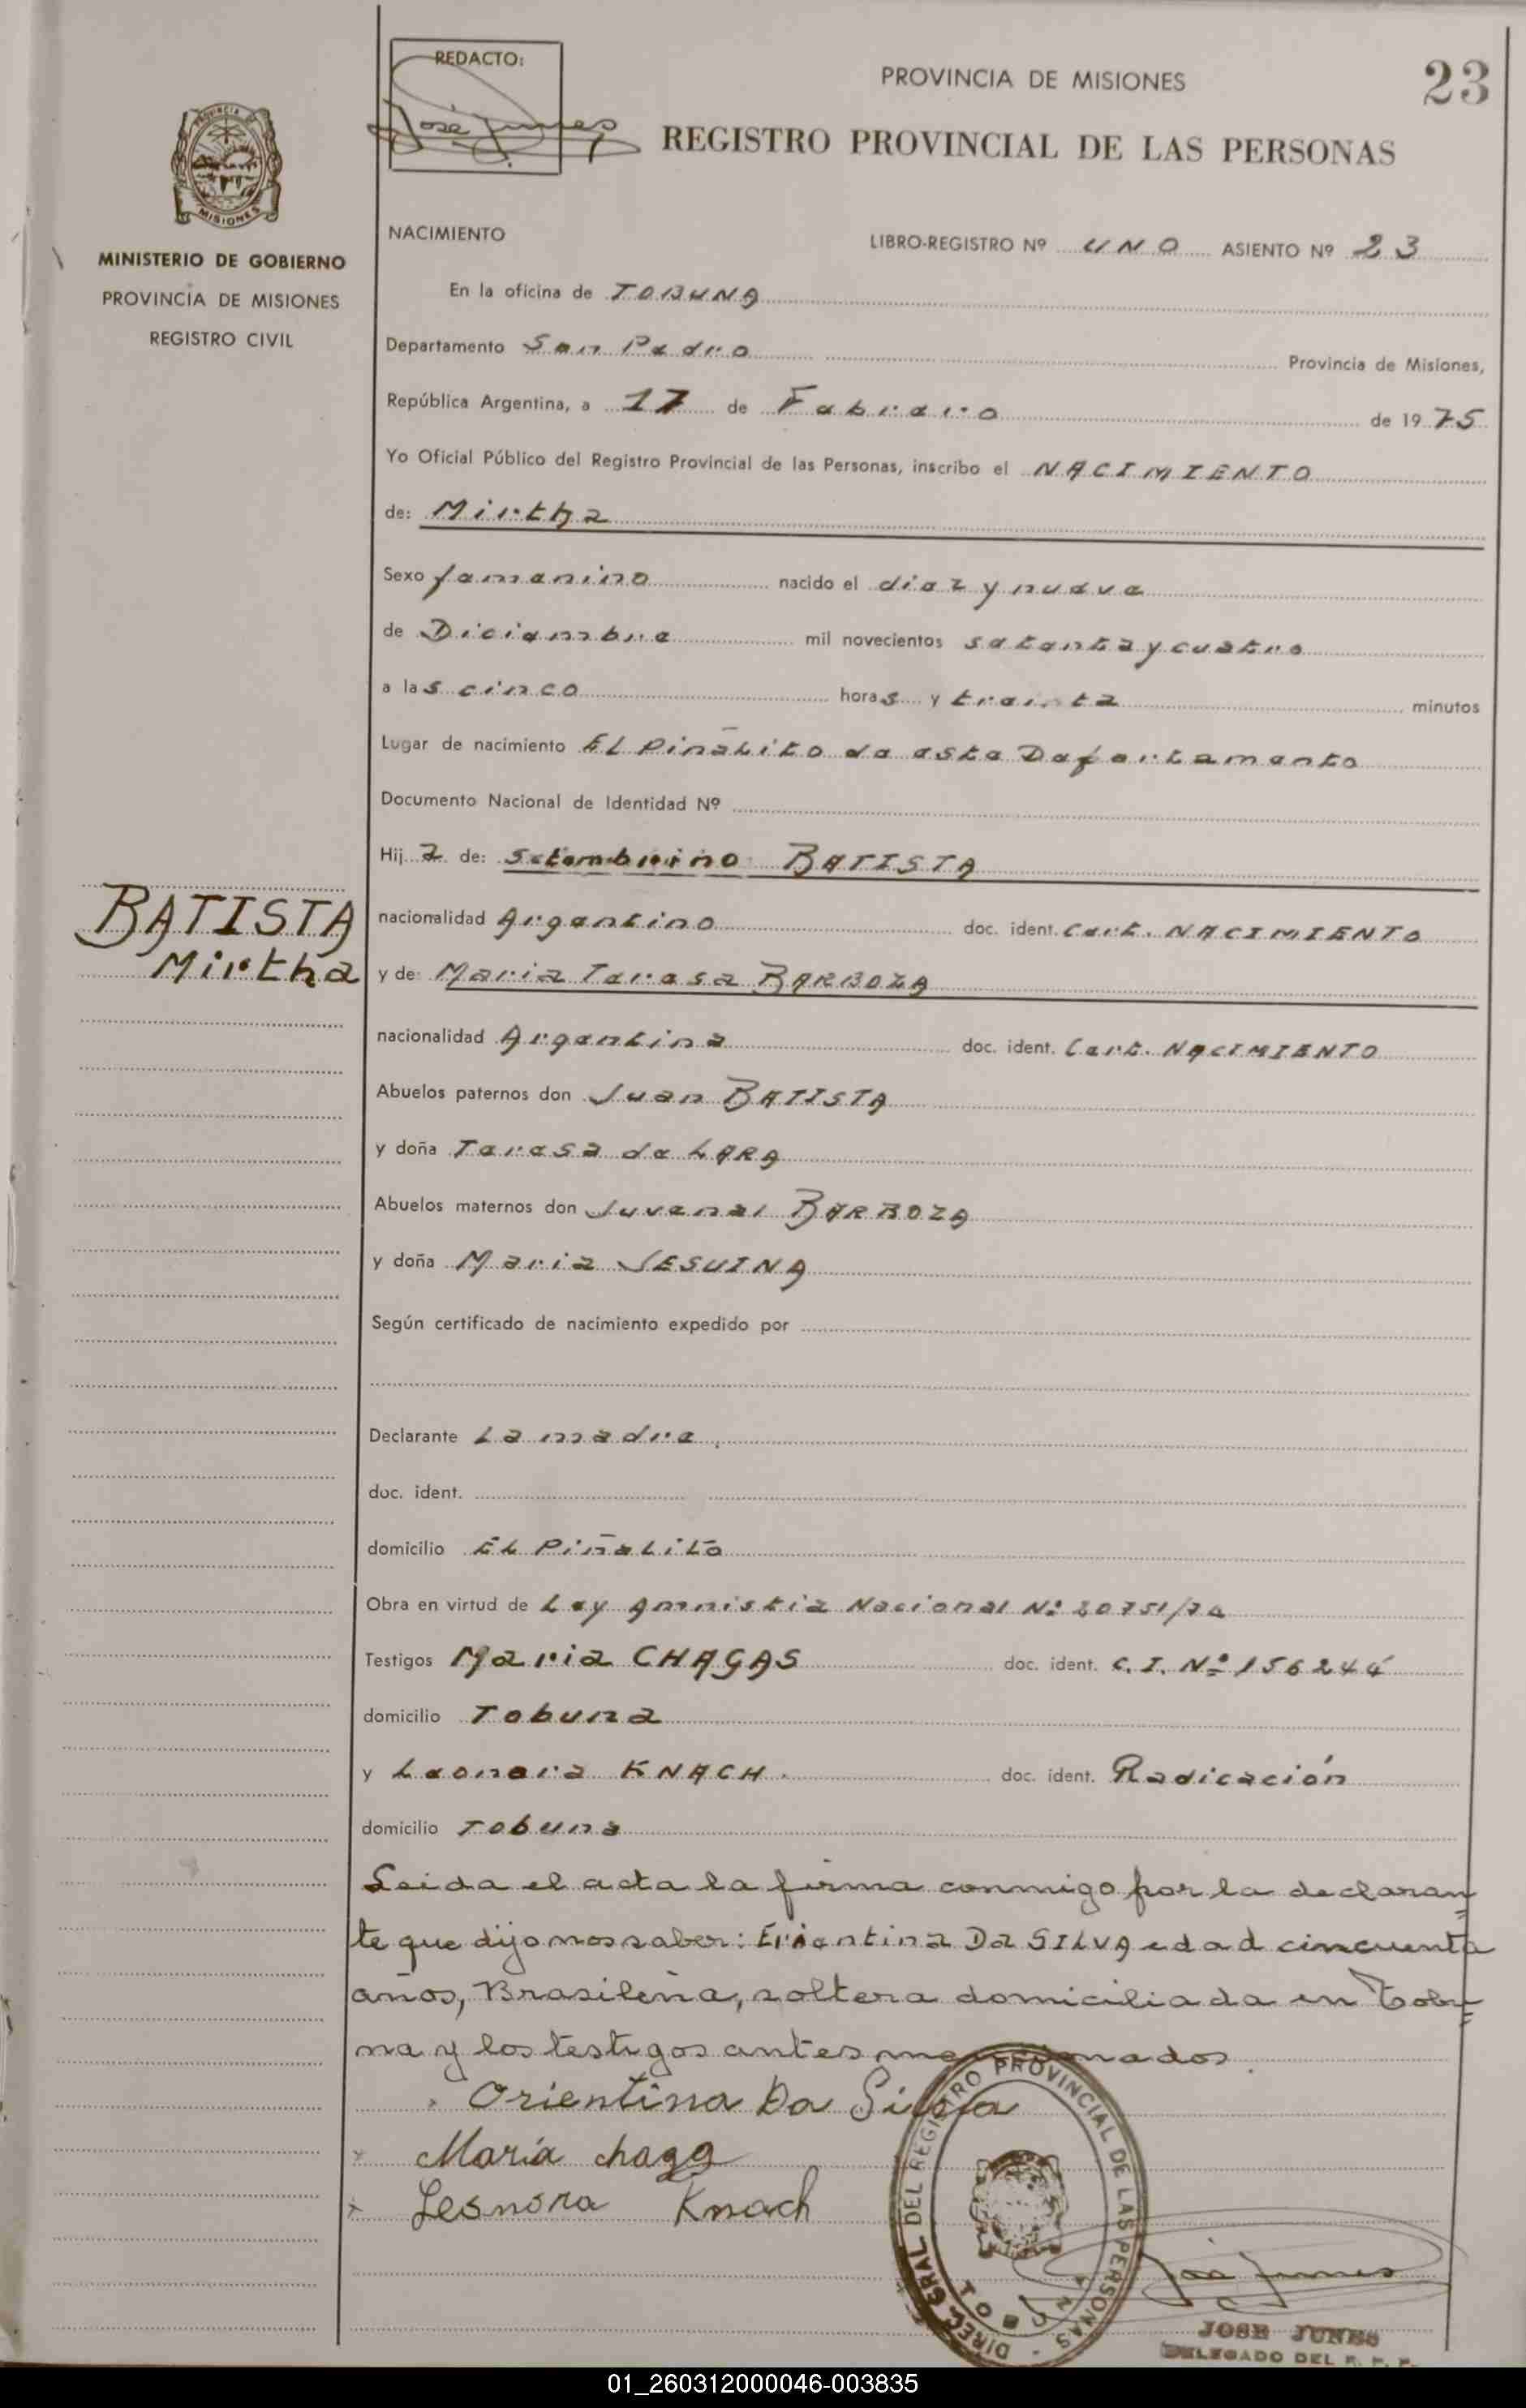 REDACTO:
José Junes
PROVINCIA DE MISIONES
23
REGISTRO PROVINCIAL DE LAS PERSONAS
PROVINCIA DE
MISIONES
MINISTERIO DE GOBIERNO
PROVINCIA DE MISIONES
REGISTRO CIVIL
NACIMIENTO
LIBRO-REGISTRO Nº UNO ASIENTO Nº 23
En la oficina de TOBUNA
Departamento San Pedro Provincia de Misiones,
República Argentina, a 17 de Febrero de 1975
Yo Oficial Público del Registro Provincial de las Personas, inscribo el NACIMIENTO
de: Mirtha
Sexo femenino nacido el diez y nueve
de Diciembre mil novecientos setenta y cuatro
a las cinco horas y treinta minutos
Lugar de nacimiento El Piñalito de este Departamento
Documento Nacional de Identidad Nº
Hija de: Setembrino BATISTA
BATISTA
Mirtha
nacionalidad Argentino doc. ident. Cert. NACIMIENTO
y de: Maria Teresa BARBOZA
nacionalidad Argentina doc. ident. Cert. NACIMIENTO
Abuelos paternos don Juan BATISTA
y doña Teresa de LARA
Abuelos maternos don Juvenal BARBOZA
y doña Maria JESUINA
Según certificado de nacimiento expedido por
Declarante La madre.
doc. ident.
domicilio El Piñalito
Obra en virtud de Ley Amnistia Nacional Nº 20751/74
Testigos Maria CHAGAS doc. ident. C.I. Nº 156244
domicilio Tobuna
y Leonora KNACH. doc. ident. Radicación
domicilio Tobuna
Leida el acta la firma conmigo por la declaran
te que dijo nos saber: Erientina Da SILVA edad cincuenta
años, Brasileña, soltera domiciliada en Tobu
na y los testigos antes mencionados.
Orientina Da Silva
x María chaga
x Leonora Knach
DIREC. GRAL. DEL REGISTRO PROVINCIAL DE LAS PERSONAS -
José Junes
JOSE JUNES
DELEGADO DEL R. P. P.
01_260312000046-003835